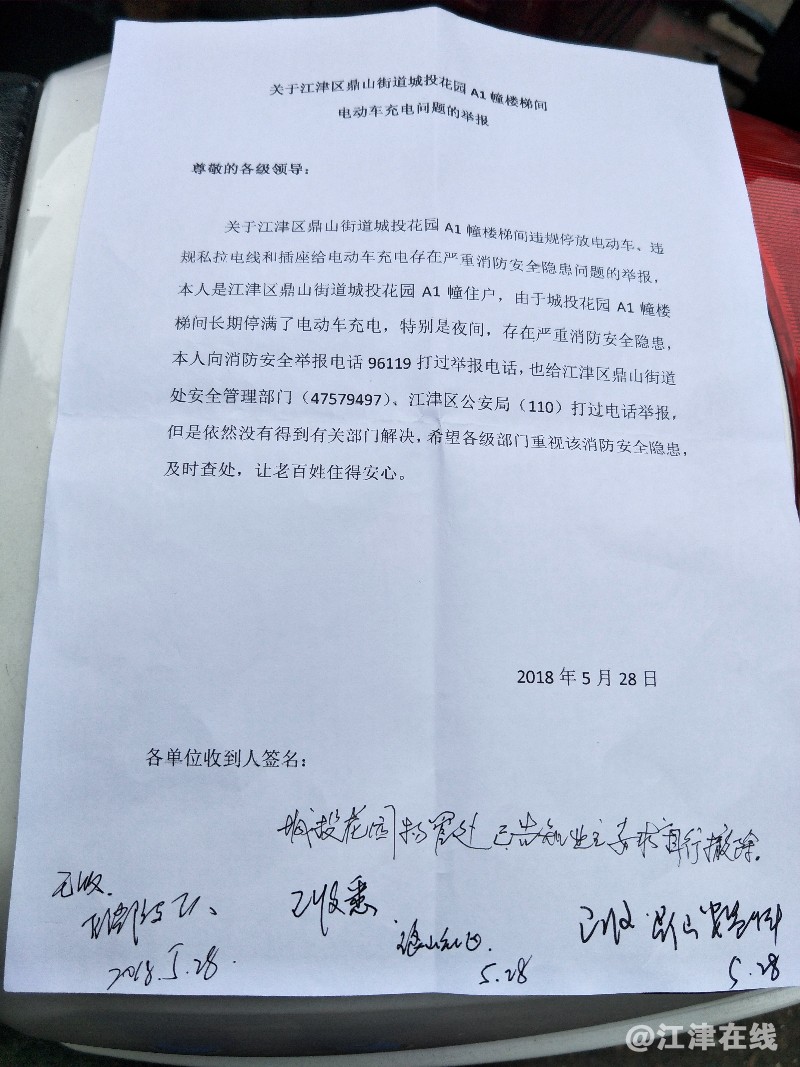 关于江津区鼎山街道城投花园 A1 幢楼梯间
电动车充电问题的举报
尊敬的各级领导：
关于江津区鼎山街道城投花园 A1 幢楼梯间违规停放电动车、违
规私拉电线和插座给电动车充电存在严重消防安全隐患问题的举报，
本人是江津区鼎山街道城投花园 A1 幢住户，由于城投花园 A1 幢楼
梯间长期停满了电动车充电，特别是夜间，存在严重消防安全隐患，
本人向消防安全举报电话 96119 打过举报电话，也给江津区鼎山街道
处安全管理部门（47579497）、江津区公安局（110）打过电话举报，
但是依然没有得到有关部门解决，希望各级部门重视该消防安全隐患，
及时查处，让老百姓住得安心。
2018 年 5 月 28 日
各单位收到人签名：
城投花园物管处 已告知业主要求自行撤除.
已收.
已收悉
已收.鼎山安监科
2018.5.28.
5.28
5.28
@江津在线